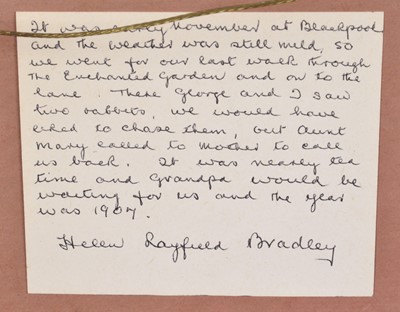 It was early November at Blackpool
and the weather was still mild, so
we went for our last walk through
The Enchanted Garden and on to the
lane. There George and I saw
two rabbits, we would have
liked to chase them, but Aunt
Mary called to Mother to call
us back. It was nearly tea
time and Grandpa would be
waiting for us and the year
was 1907.
Helen Layfield Bradley